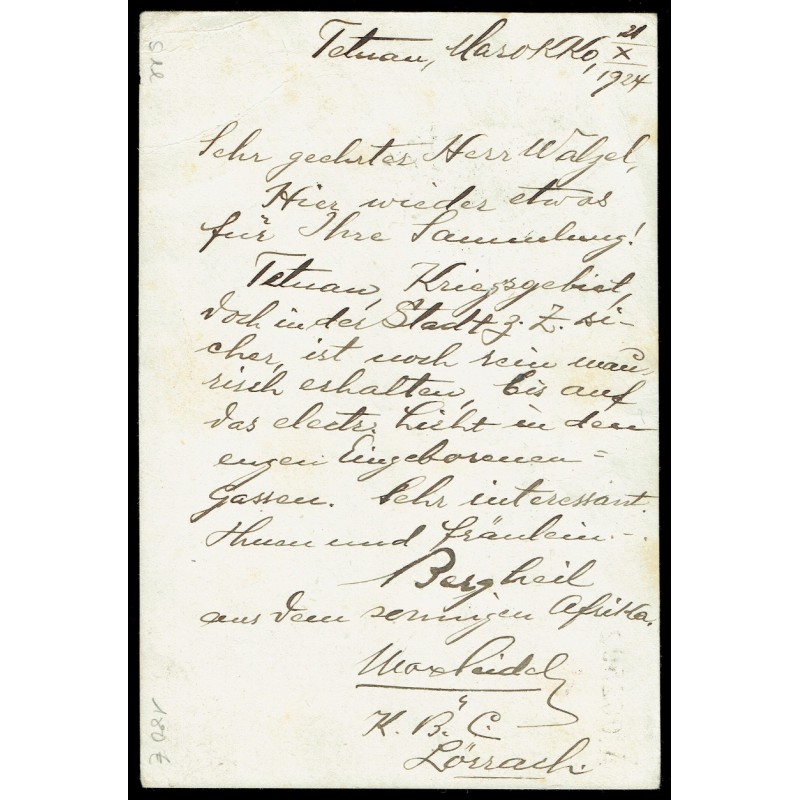 Tetuan, Marokko, 21/X/1924
Sehr geehrter Herr Walzel,
Hier wieder etwas
für Ihre Sammlung!
Tetuan, Kriegsgebiet,
doch in der Stadt z. Z. si-
cher, ist noch rein mau-
risch erhalten, bis auf
das electr. Licht in den
engen Eingeborenen=
Gassen. Sehr interessant.
Ihnen und Fräulein -.
Bergheil
aus dem sonnigen Afrika.
Max Seidel
K. B. C.
Lörrach.
180 €